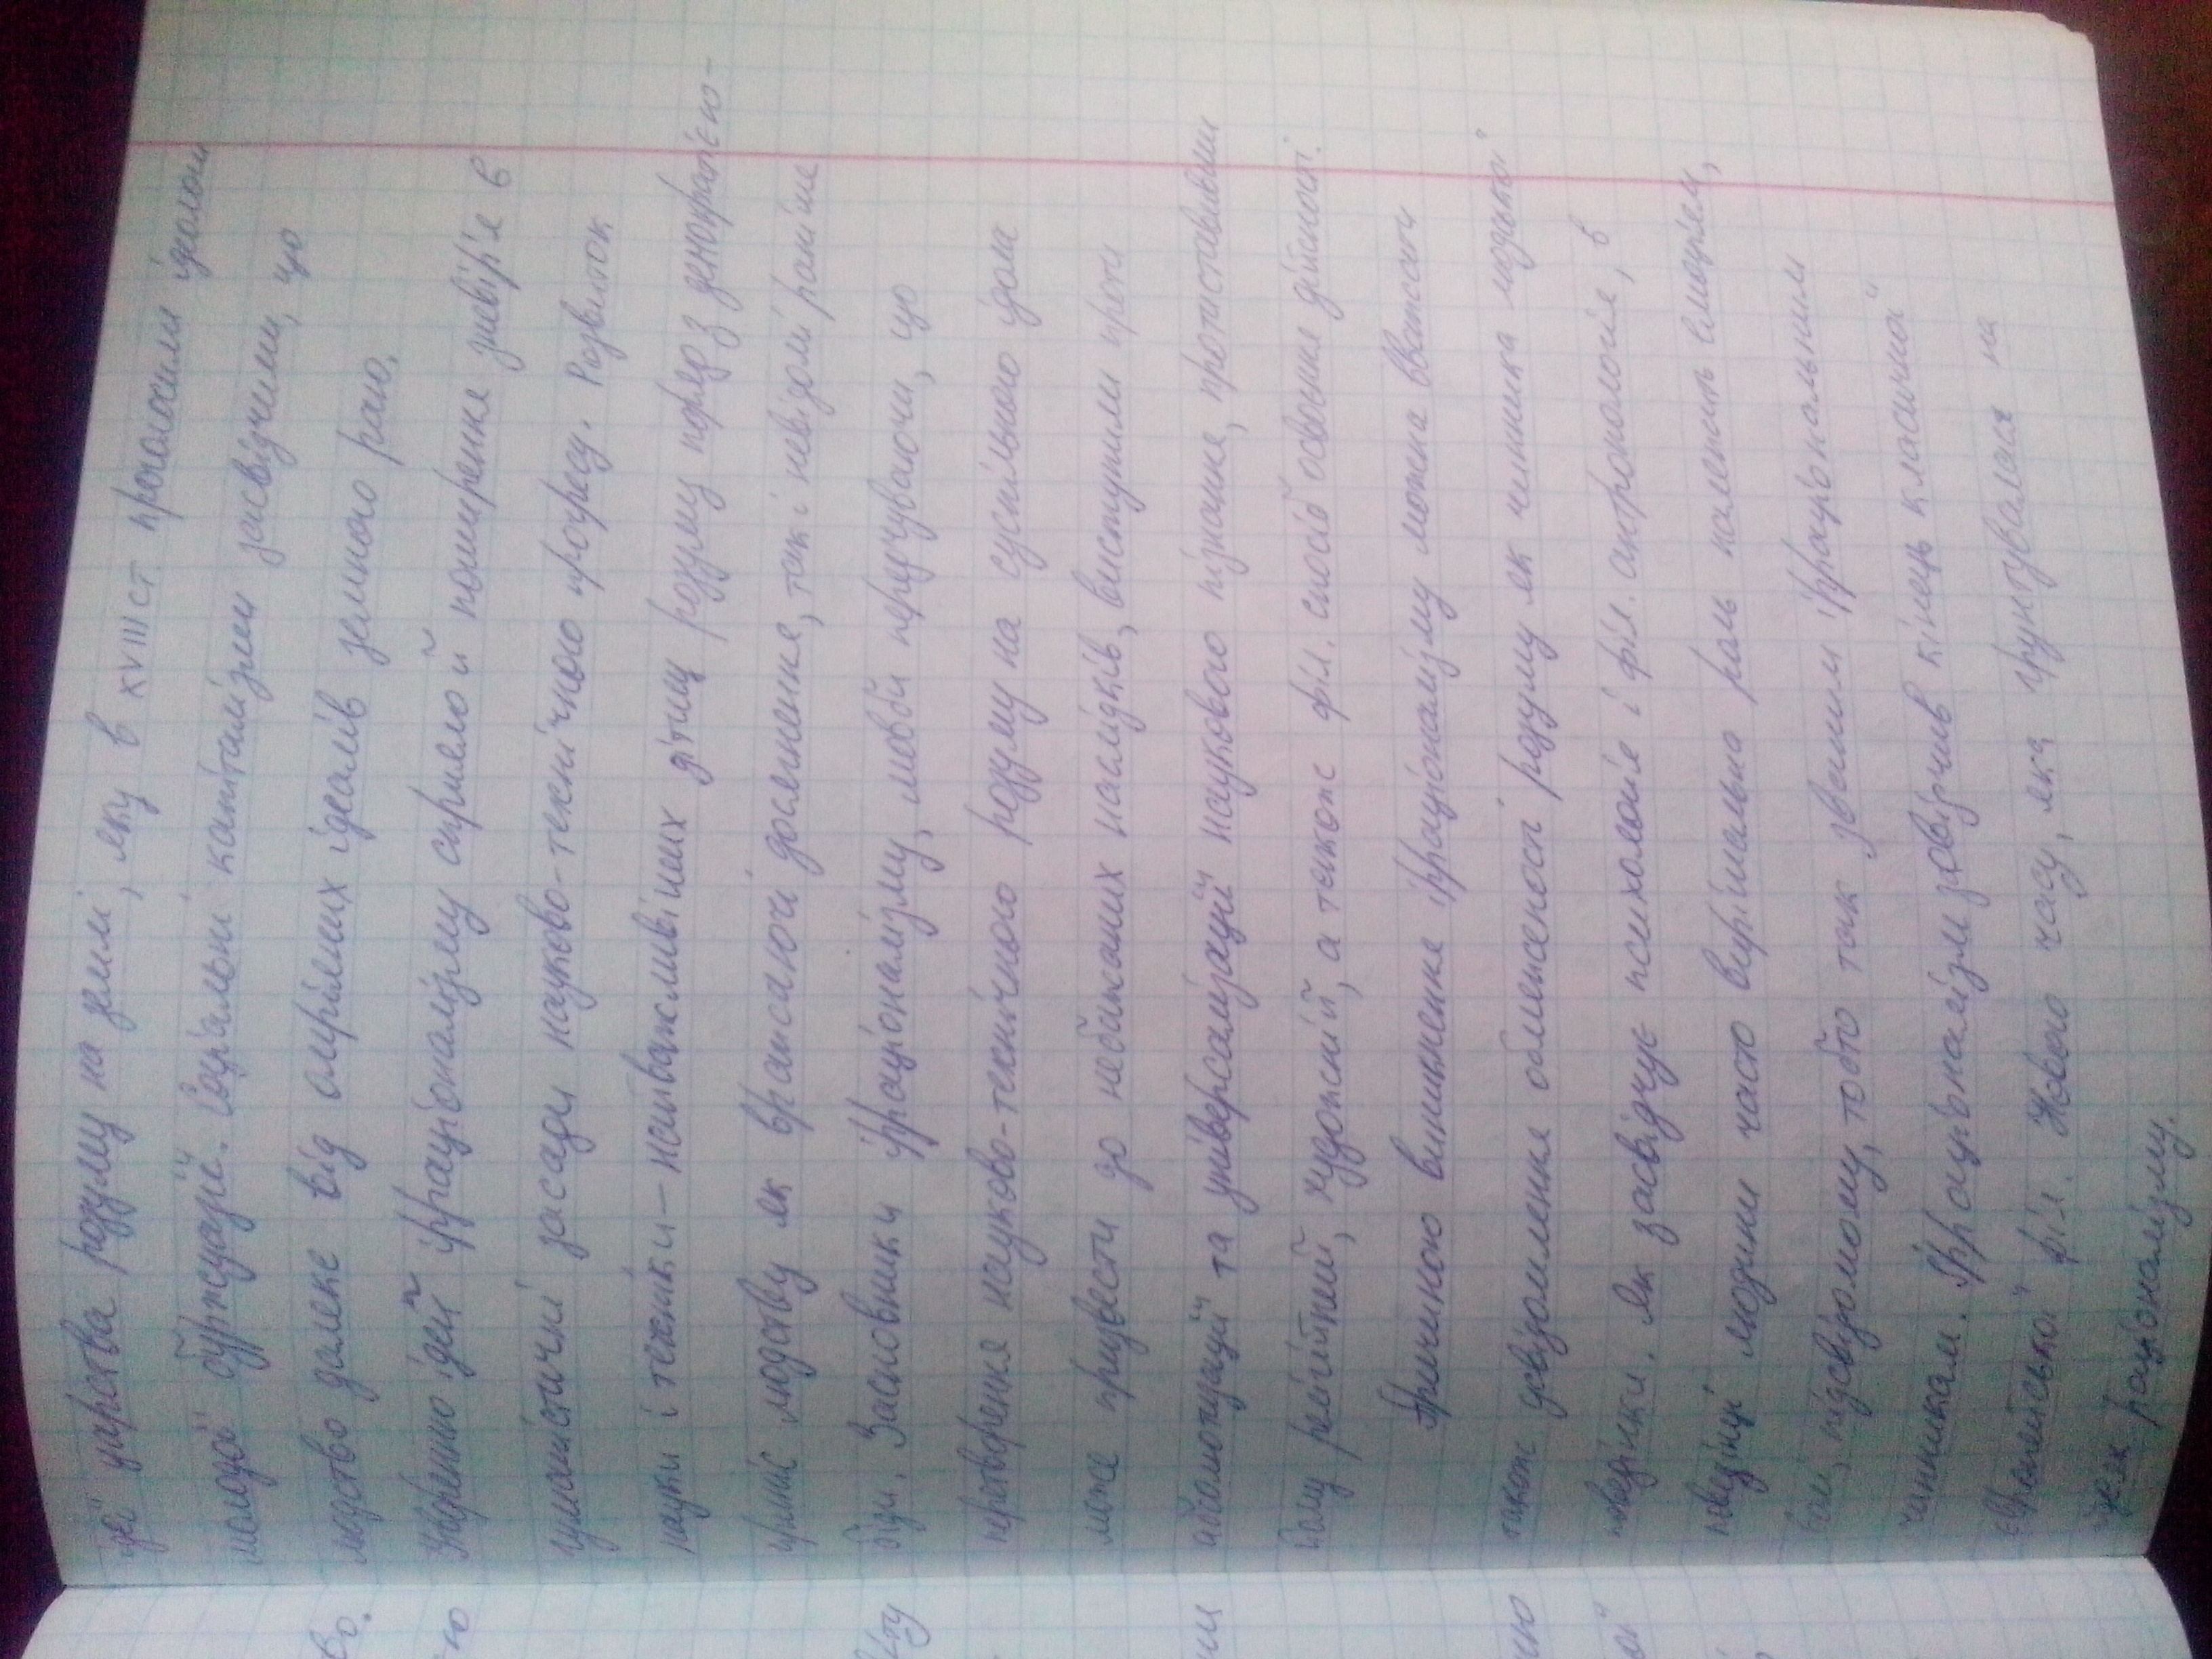 ідеї царства розуму на землі, яку в XVIII ст. проголосили ідеологи
молодої буржуазії. Соціальні капіталізми засвідчили, що
людство далеке від омріяних ідеалів земного раю.
Утворенню ідей ірраціоналізму сприяло й поширення зневір'я в
гуманістичні засади науково-технічного прогресу. Розвиток
науки і техніки – найважливіших дітищ розуму поряд з демократією –
приніс людству як вражаючі досягнення, так і невідомі раніше
біди. Засновники ірраціоналізму, мовби передчуваючи, що
перетворення науково-технічного розуму на суспільного ідола
може призвести до небажаних наслідків, виступили проти
абсолютизації та універсалізації наукового пізнання, протиставивши
йому релігійний, художній, а також філ. спосіб освоєння дійсності.
Причиною виникнення ірраціоналізму можна вважати
також усвідомлення обмеженості розуму як чинника людської
поведінки. Як засвідчує психологія і філ. антропологія, в
поведінці людини часто вирішальна роль належить емоціям,
волі, підсвідомому, тобто так званим ірраціональним
чинникам. Ірраціоналізм засвідчив кінець класичної
європейської філ. Нового часу, яка грунтувалася на
ідеях раціоналізму.
во.
ню
кту
ни
ню
ої